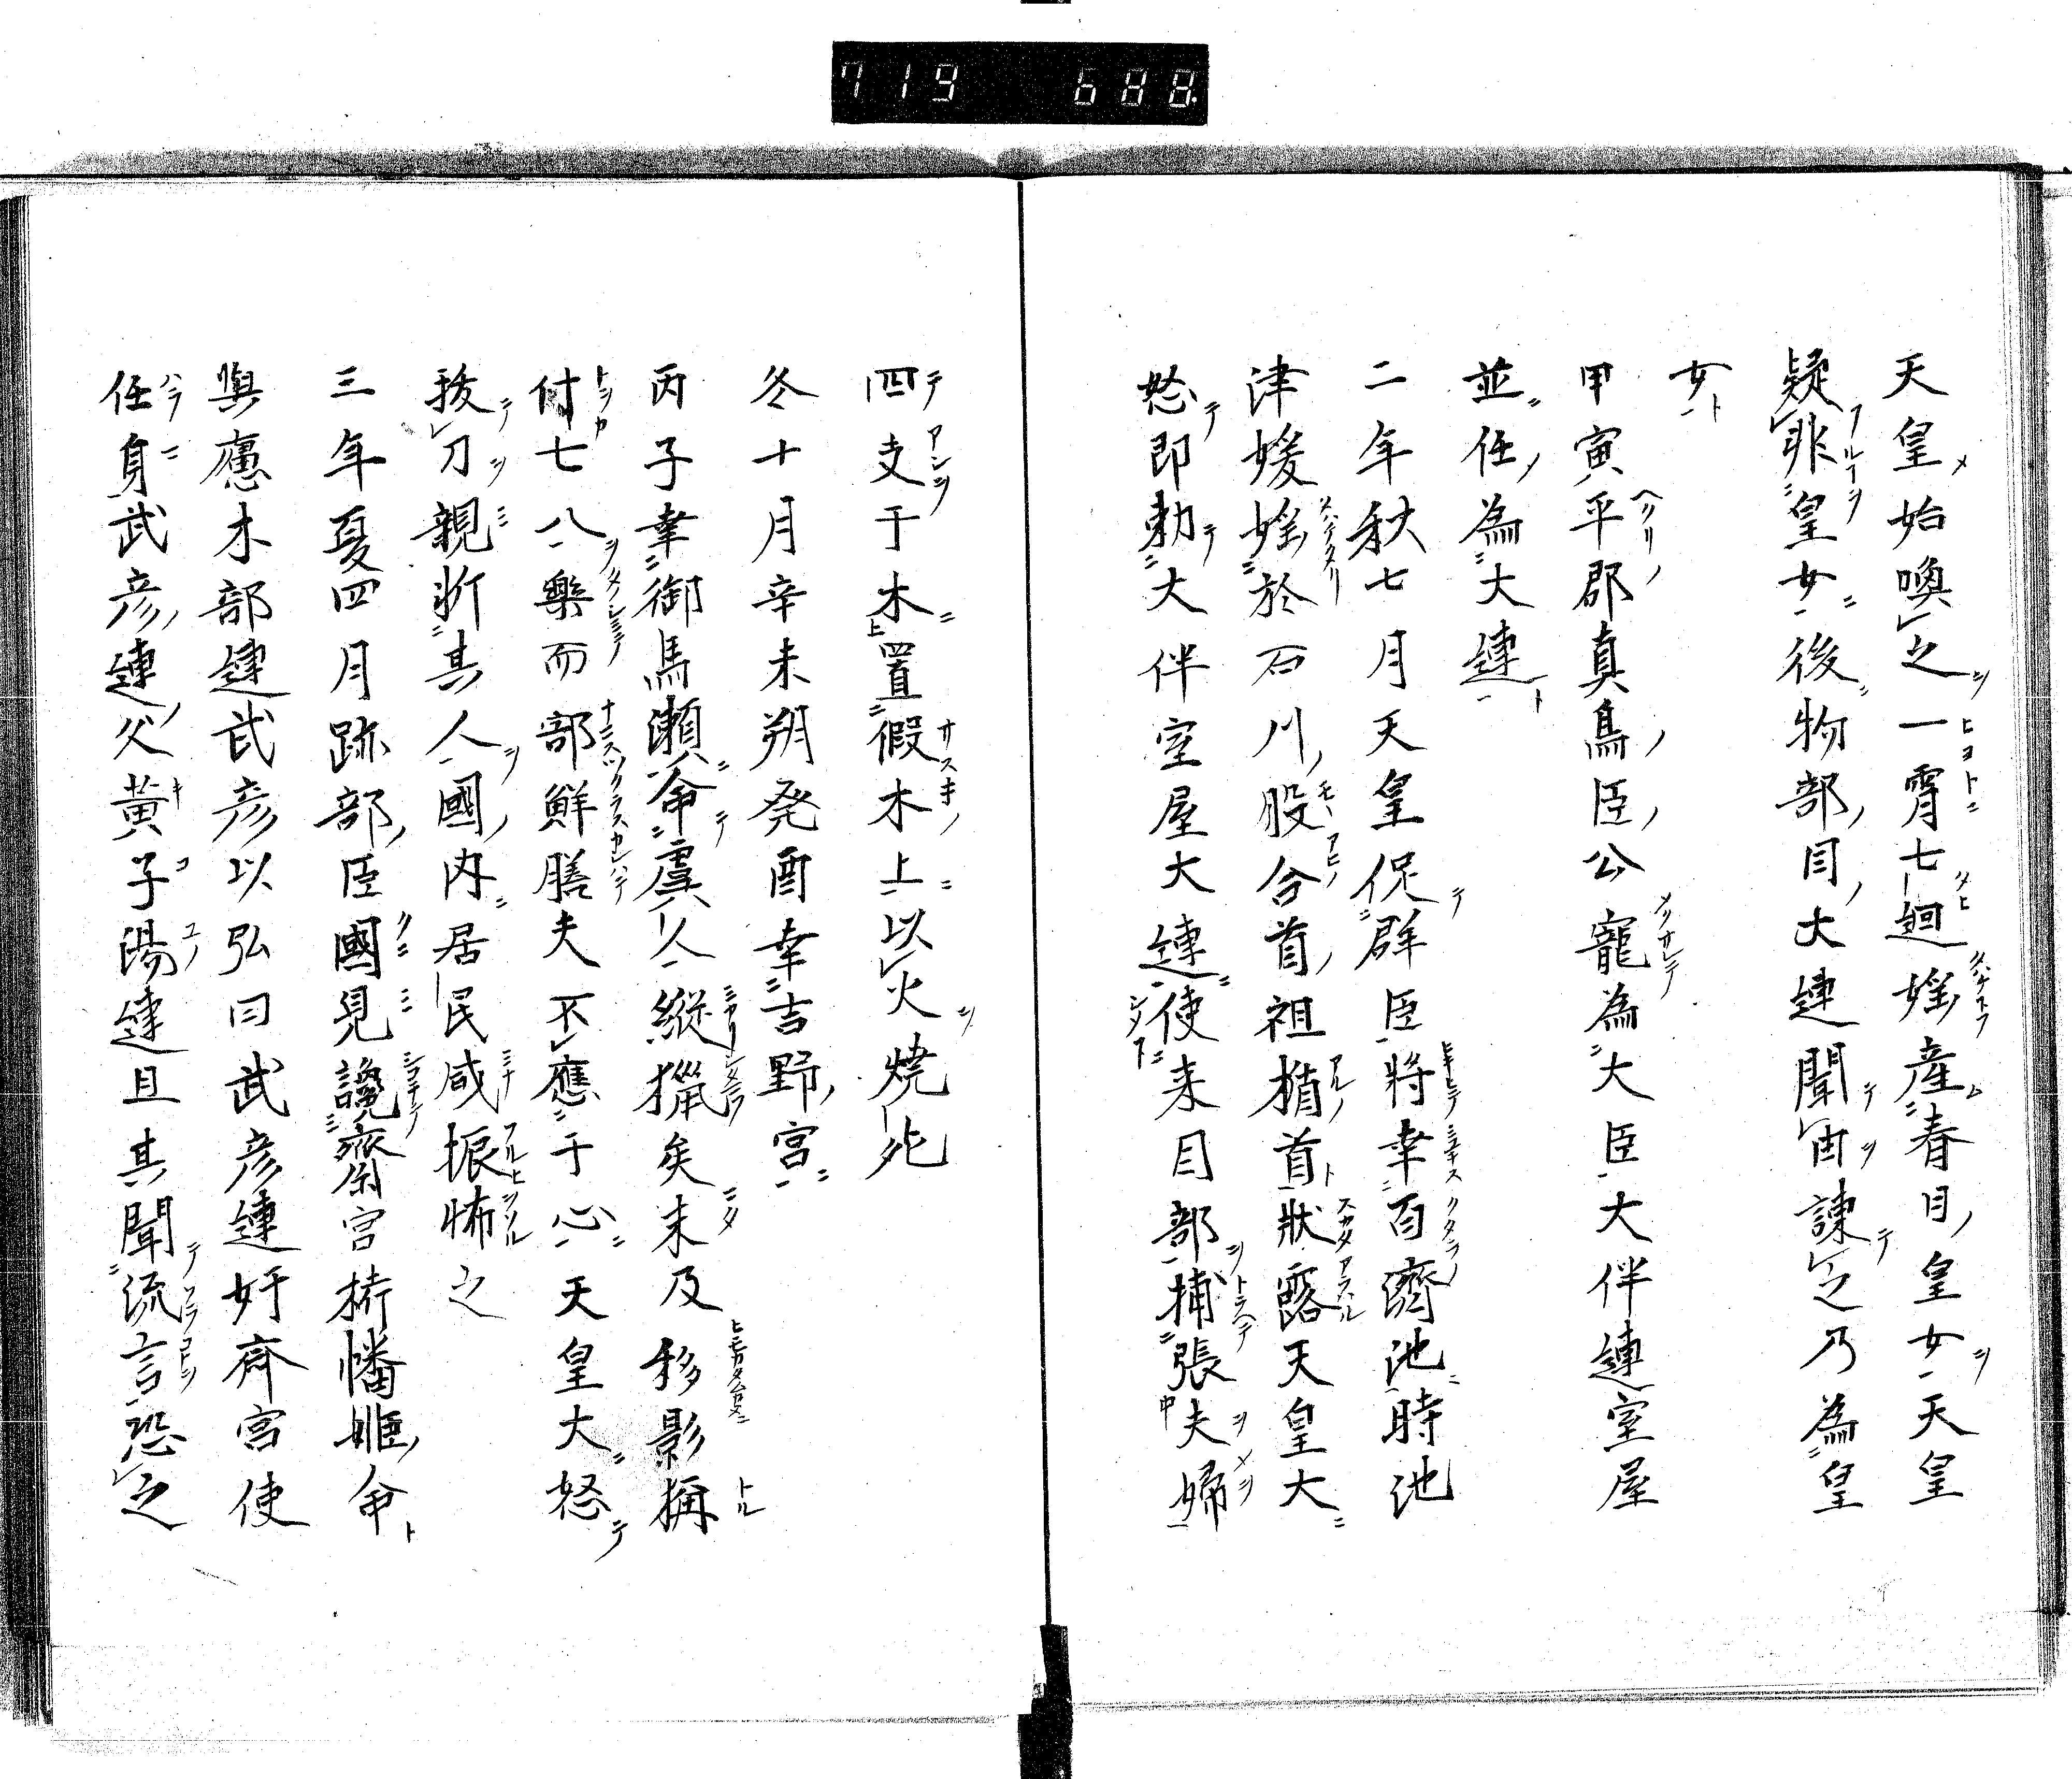 719 688
天皇始喚之一霄七廻婬産春日皇女天皇
疑非皇女後物部目大連聞由諫之乃為皇
女
甲寅平郡真鳥臣公寵為大臣大伴連室屋
並任為大連
二年秋七月天皇促群臣將幸百濟池時池
津媛婬於石川股合首祖楯首狀露天皇大
怒即勅大伴室屋大連使来目部捕張夫婦
四支于木置假木上以火燒死
冬十月辛未朔発酉幸吉野宮
丙子幸御馬瀬命虞人縦獵矣未及移影稱
付七八樂而部鮮膳夫不應于心天皇大怒
拔刀親斨其人國内居民咸振怖之
三年夏四月跡部臣國見讒齋宮栲幡姫命
與廬木部連武彦以弘曰武彦連奸斎宮使
任身武彦連父黄子陽連且其聞流言恐之